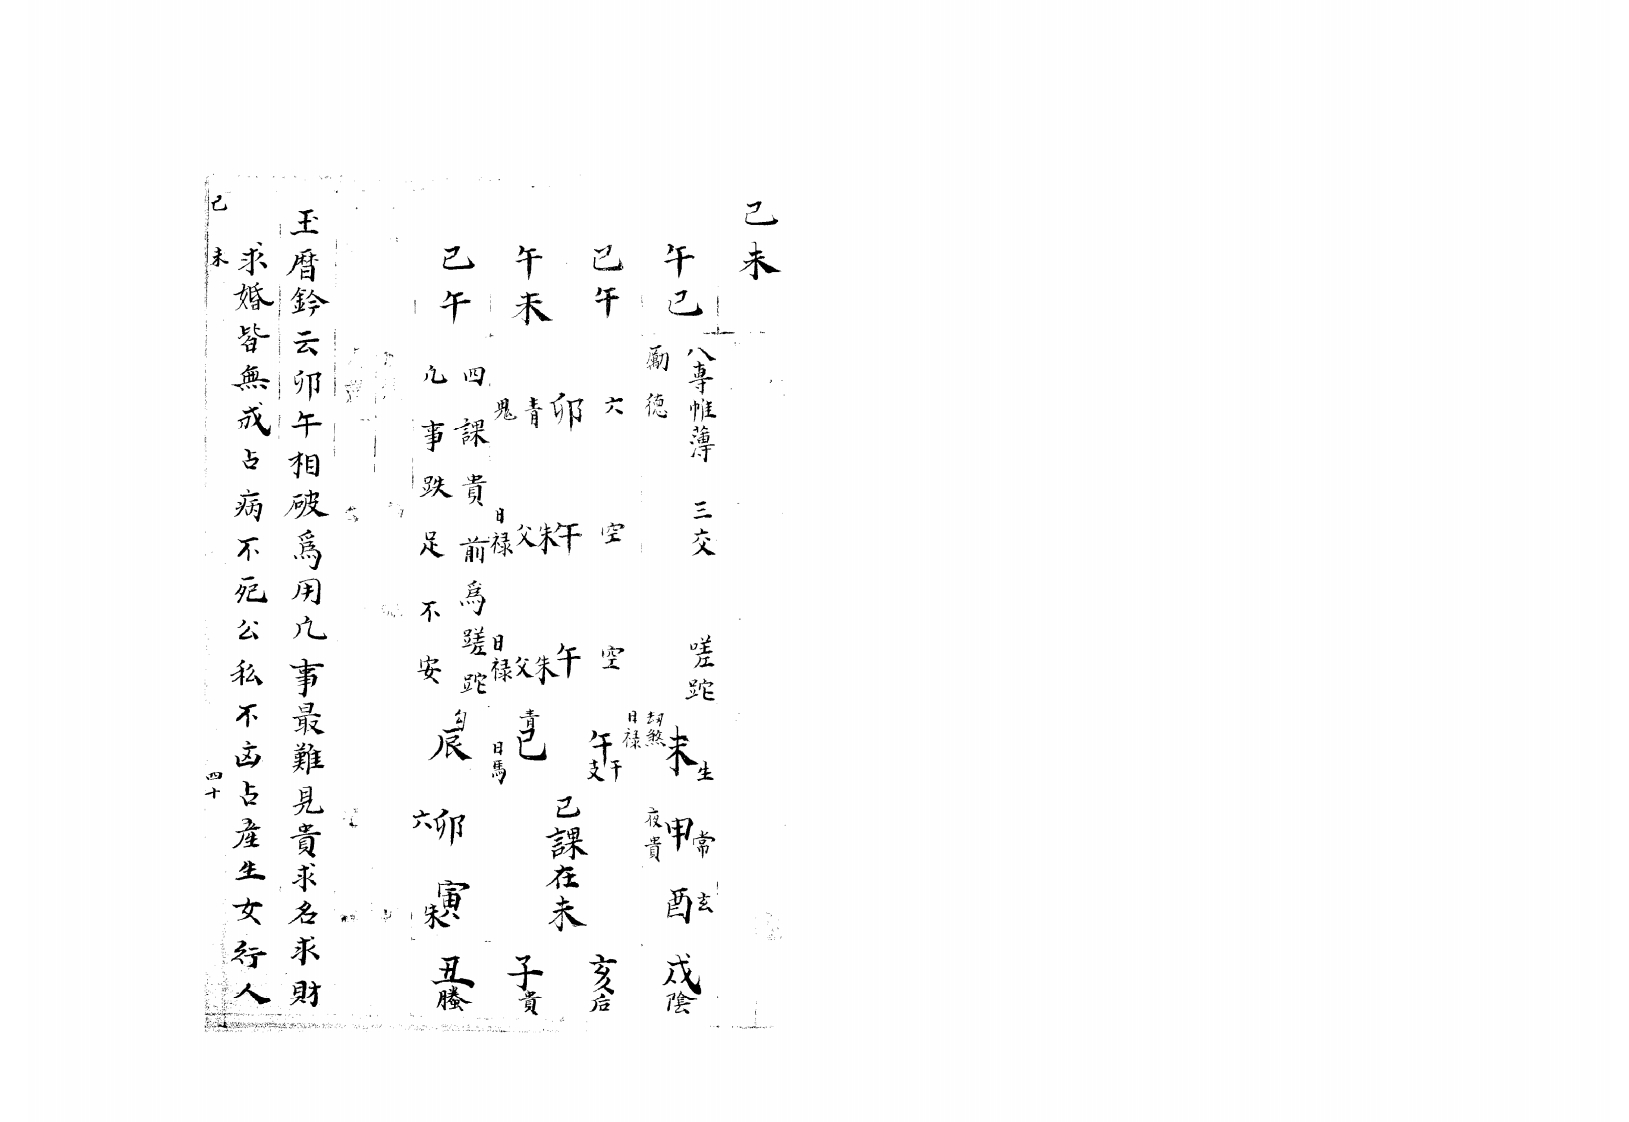 己未
午己
己午
午未
己午
八專帷薄 三交 嗟跎
勵德
六 空 空
卯 午 午
青 朱 朱
鬼 父 父
日祿 日祿
四課貴前為蹉跎
凡事跌足不安
未生 劫煞 日祿
午干支
青巳 日馬
勾辰
甲常 夜貴
六卯
己課在未
酉玄
寅朱
戌陰
亥后
子貴
丑螣
玉曆鈐云卯午相破爲用凡事最難見貴求名求財
求婚皆無成占病不死公私不凶占產生女行人
己未
四十